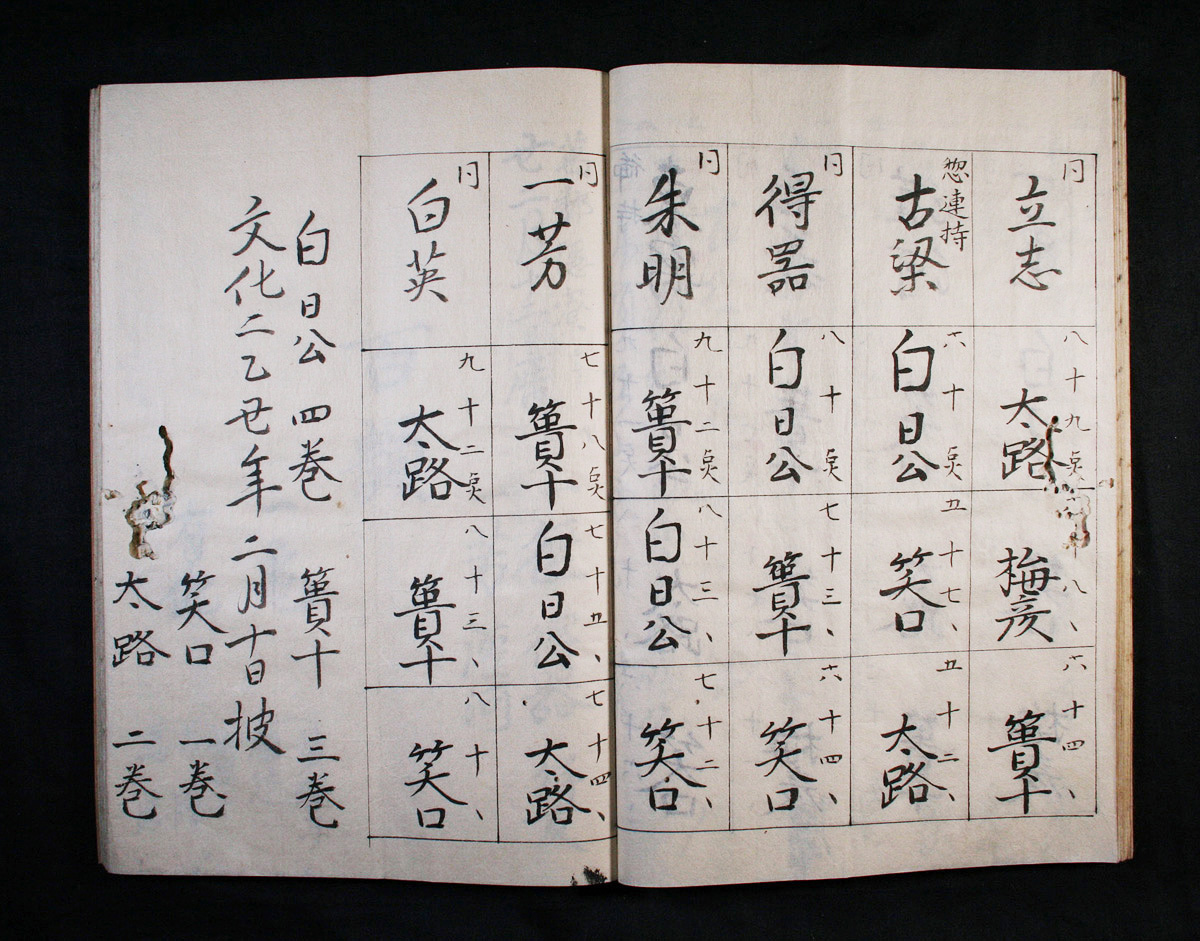 同
立志
八十九点
太路
十八、
梅彦
六十四、
簣十
惣連持
古梁
六十点
白日公
五十七、
笑口
五十二、
太路
同
得器
八十点
白日公
七十三、
簣十
六十四、
笑口
同
朱明
九十二点
簣十
八十三、
白日公
七十二、
笑口
同
一芳
七十八点
簣十
七十五、
白日公
七十四、
太路
同
白英
九十二点
太路
八十三、
簣十
八十、
笑口
白日公 四巻 簣十 三巻
文化二乙丑年二月十日披
笑口 一巻
太路 二巻